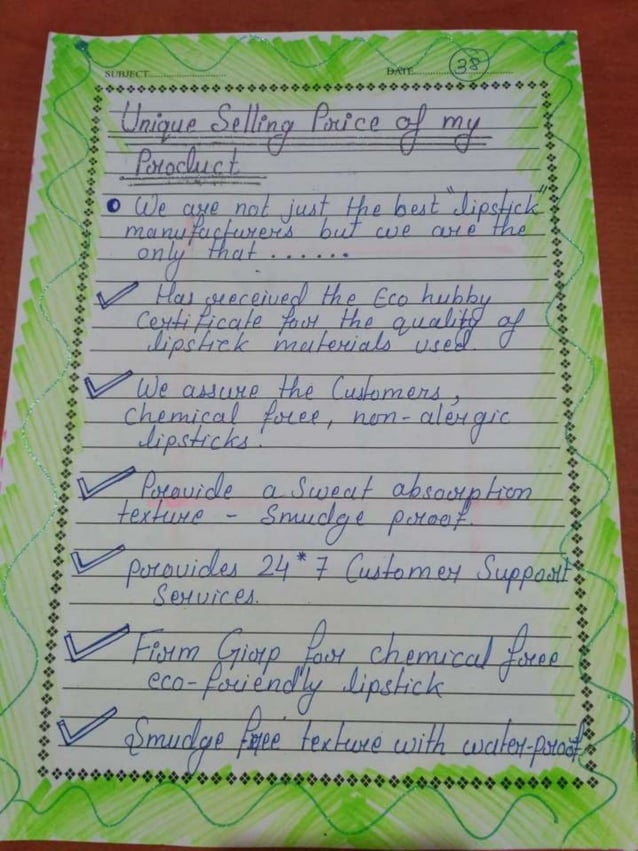 SUBJECT
DATE
38
Unique Selling Price of my
Product
We are not just the best "lipstick"
manufacturers but we are the
only that ......
Has received the Eco hubby
Certificate for the quality of
lipstick materials used.
We assure the Customers,
chemical free, non-alergic
lipsticks.
Provide a Sweat absorption
texture - Smudge proof.
provides 24*7 Customer Support
Services.
Firm Girp for chemical free
eco-friendly lipstick
Smudge free texture with water-proof